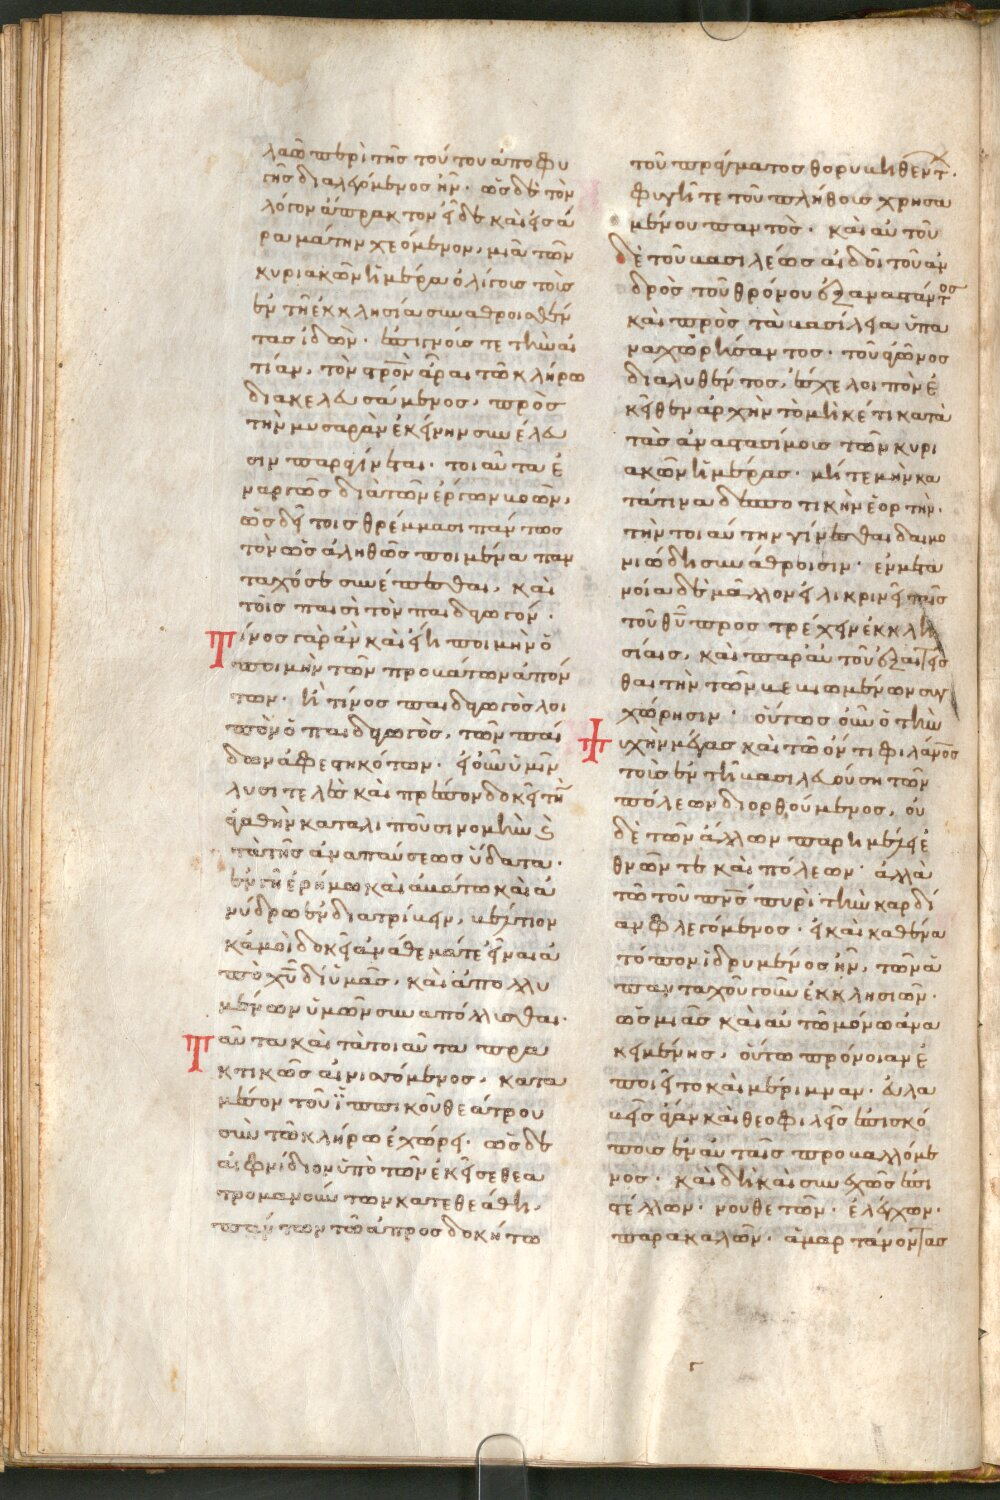 λαῶ περὶ τῆς τούτου ἀποφυ
γῆς διαλεγόμενος ἦν· ὡς δὲ τὸν
λόγον ἄπρακτον εἶδε καὶ εἰς ἀέ
ρα μάτην χεόμενον, μιᾶ τῶν
κυριακῶν ἡμέρα ὀλίγοις τοῖς
ἐν τῆ ἐκκλησία συναθροισθεῖ
τας ἰδὼν· ἐπιγνούς τε τὴν αἰ
τίαν, τὸν στρον ἆραι τῶ κλήρω
διακελευσάμενος, πρὸς
τὴν μυσαρὰν ἐκείνην συνέλευ
σιν παραγίνεται· τοιαῦτα ἐ
ναργῶς διὰ τῶν ἔργων βοῶν,
ὡς δεῖ τοις θρέμμασι πάντως
τὸν ὡς ἀληθῶς ποιμένα παν
ταχόσε συνέπεσθαι, καὶ
τοῖς παισὶ τὸν παιδαγωγόν·
Τίνος γὰρ ἂν καὶ εἴη ποιμὴν ὁ
ποιμὴν τῶν προβάτων ἀπόν
των· ἢ τίνος παιδαγωγὸς λοι
πὸν ὁ παιδαγωγὸς, τῶν παί
δων ἀφεστηκότων· εἰ οὖν ὑμῖν
λυσιτελὲς καὶ πρέπον δοκεῖ τὴν
ἀγαθὴν καταλιποῦσι νομὴν καὶ
τὰ τῆς ἀναπαύσεως ὕδατα·
ἐν γῆ ἐρήμω καὶ ἀβάτω καὶ ἀ
νύδρω ἐνδιατρίβειν, βέλτιον
κἀμοὶ δοκεῖ ἀνάθεμά τε εἶναι ἀ
πὸ χυ δι' ὑμᾶς, καὶ ἀπολλυ
μένων ὑμῶν συναπόλλυσθαι·
Ταῦτα καὶ τὰ τοιαῦτα πρα
κτικῶς αἰνισσόμενος, κατα
μέσον τοῦ ἱππικοῦ θεάτρου
σὺν τῶ κλήρω ἐχώρει· ὡς δὲ
αἰφνίδιον ὑπὸ τῶν ἐκεῖσε θεα
τρομανούντων κατεθεάθη,
πάντων τῶ ἀπροσδοκήτω
τοῦ πράγματος θορυβηθέντ·
φυγῆ τε τοῦ πλήθους χρησα
μένου παντὸς· καὶ αὐτοῦ
δὲ τοῦ βασιλέως αἰδοῖ τοῦ ἀν
δρὸς τοῦ θρόνου ἐξαναστάντος
καὶ πρὸς τὰ βασίλεια ὑπα
ναχωρήσαντος· τοῦ ἀγῶνος
διαλυθέντος, ἔσχε λοιπὸν ἐ
κεῖθεν ἀρχὴν τὸ μὴ κέτι κατὰ
τὰς ἀναστασίμους τῶν κυρι
ακῶν ἡμέρας· μήτε μὴν κα
τά τινα δεσποτικὴν ἑορτὴν·
τὴν τοιαύτην γίνεσθαι δαιμο
νιώδη συνάθροισιν· ἐν μετα
νοία δὲ μᾶλλον εἰλικρινεῖ ταῖς
τοῦ θυ προστρέχειν ἐκκλη
σίαις, καὶ παρ' αὐτοῦ ἐξαιτεῖς
θαι τὴν τῶν βεβιωμένων συγ
χώρησιν· οὕτως οὖν ὁ τὴν
ψυχὴν μέγας καὶ τῶ ὄντι φιλάνος
τοὺς ἐν τῆ βασιλευούση τῶν
πόλεων διορθούμενος, οὐ
δὲ τῶν ἄλλων παρημέλει ἐ
θνῶν τε καὶ πόλεων· ἀλλὰ
τῶ τοῦ πνς πυρὶ τὴν καρδί
αν φλεγόμενος· εἰ καὶ καθ' ἕνα
τόπον ἱδρυμένος ἦν, τῶν ἁ
πανταχοῦ γοῦν ἐκκλησιῶν·
ὡς μιᾶς καὶ αὐτῶ μόνω ἀνα
κειμένης, οὕτω πρόνοιαν ἐ
ποιεῖτο καὶ μέριμναν· εὐλα
βεῖς ἀεὶ καὶ θεοφιλεῖς ἐπισκό
πους ἐν αὐταῖς προβαλλόμε
νος· καὶ δὴ καὶ συνεχῶς ἐπι
στέλλων· νουθετῶν· ἐλέγχων·
παρακαλῶν· ἁμαρτάνοντας